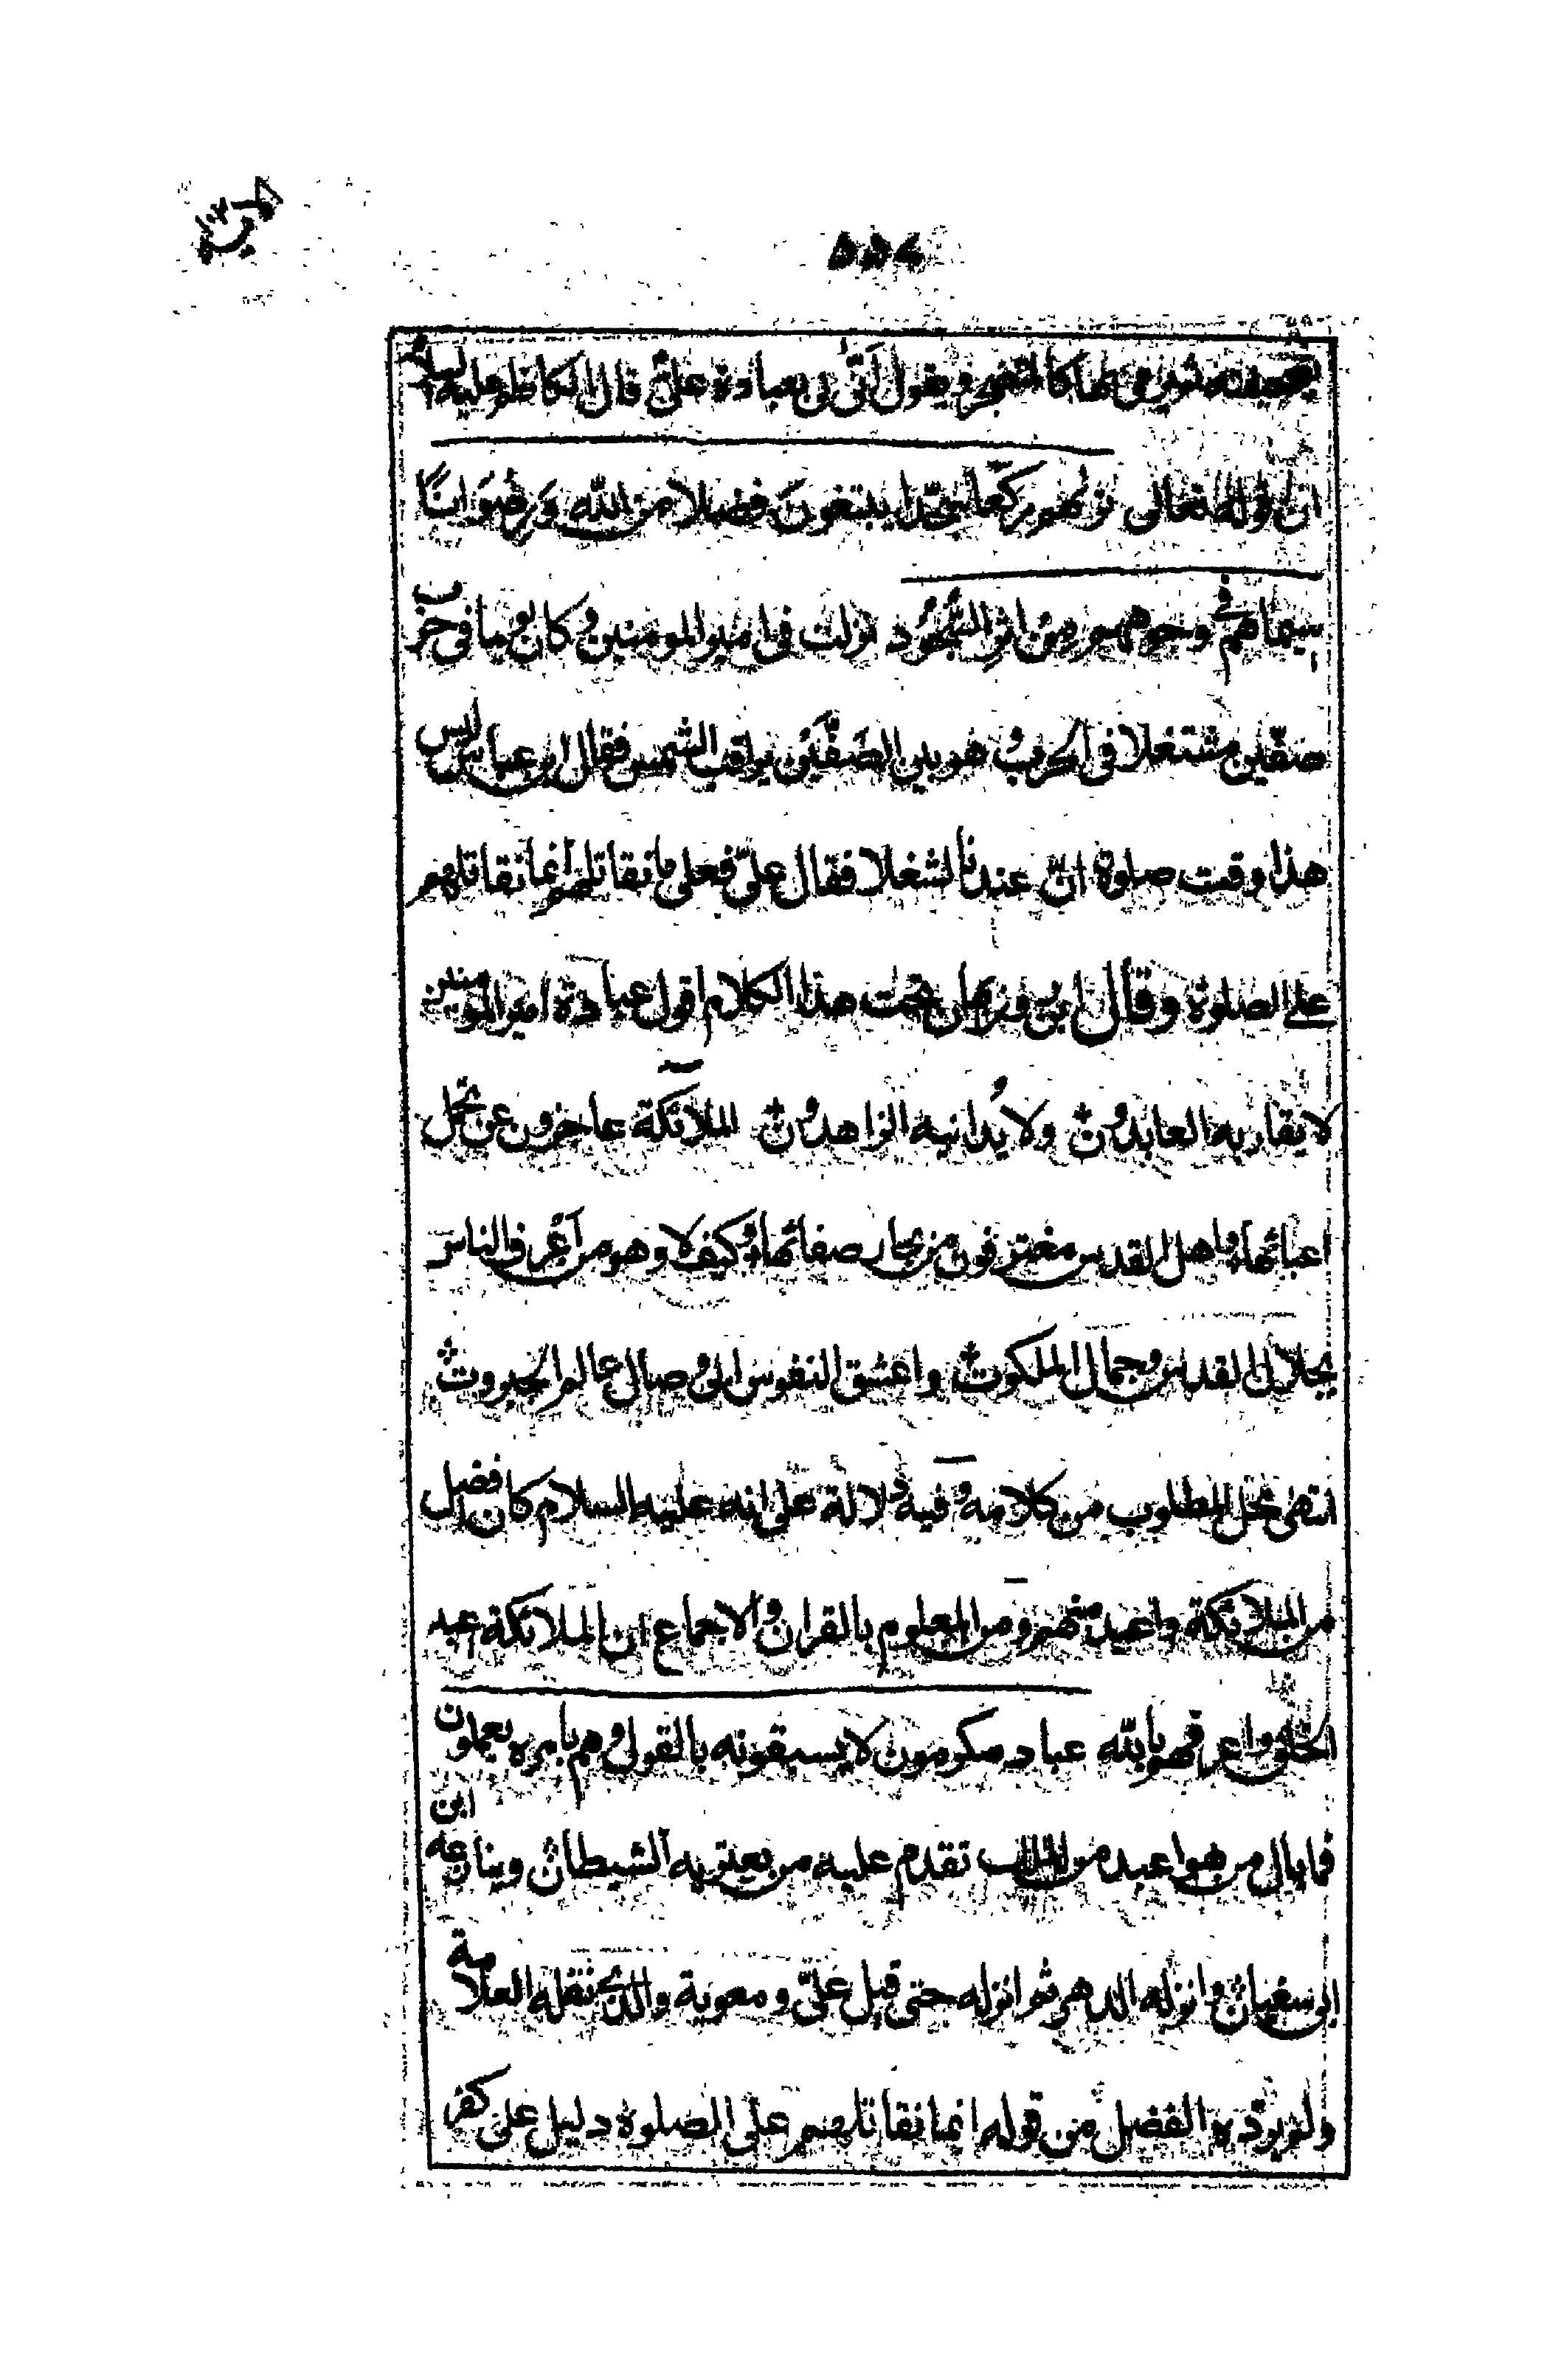 بصحيفته ثم يرمى بها كالمتضجر و يقول انّى لى بعبادة علىّ قال الكاظم عليه السلام
ان قوله تعالى تراهم ركعا سجّدا يبتغون فضلا من الله وَرِضوَانًا
سيماهم فى وجوههم مِن اثرِ السُّجُود نزلت فى امير المومنين وكان يوما فى حرب
صفّين مشتغلا فى الحرب وهو بين الصَفّيَن يراقب الشمس فقال ابن عباس ليس
هذا وقت صلوة انّ عندنا لشغلا فقال علىّ فعلى ما نقاتلهم انما نقاتلهم
على الصلوة وقال ابن روزبهان تحت هذا الكلام اقول عبادة امير المومنين
لا يقاربه العابدون ولا يُدانيه الزاهدون الملائكة عاجزون عن تحمل
اعبائها واهل القدس مغترفون من بحار صفائها وكيف لا وهو من اَعرف الناس
بجلال القدس وجمال الملكوت واعشق النفوس الى وصال عالم الجبروت
انتهى محل المطلوب من كلامه وفيه دلالة على انه عليه السلام كان افضل
من الملائكة واعبد منهم ومن المعلوم بالقران والاجماع ان الملائكة اعبد
الخلق واعرفهم بالله عباد مكرمون لا يسبقونه بالقول وهم بامره يعملون
فما بال من هو اعبد من تقدم عليه من يعتريه الشيطان وينازعه ابن
ابى سفيان وانزله الدهر ثم انزله حتى قيل علىّ و معوية والذى نقله العلامة
ولم يردّه الفضل من قوله انما نقاتلهم على الصلوة دليل على كفر